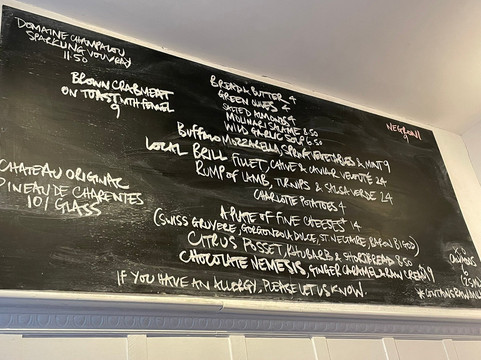 DOMAINE CHAMPALOU
SPARKLING VOUVRAY
11.50
BROWN CRABMEAT
ON TOAST WITH FENNEL
9
BREAD & BUTTER 4
GREEN OLIVES 4
SALTED ALMONDS 4
MOLINARI SALAME 8.50
WILD GARLIC SOUP 6.50
BUFFALO MOZZARELLA, SPRING VEGETABLES & MINT 9
LOCAL BRILL FILLET, CHIVE & CAVIAR VELOUTÉ 24
RUMP OF LAMB, TURNIPS & SALSA VERDE 24
CHARLOTTE POTATOES 4
A PLATE OF FINE CHEESES 14
(SWISS GRUYERE, GORGONZOLA DOLCE, ST. NECTAIRE, BARON BIGOD)
CITRUS POSSET, RHUBARB & SHORTBREAD 8.50
CHOCOLATE NEMESIS GINGER CARAMEL & RAW CREAM 9
IF YOU HAVE AN ALLERGY, PLEASE LET US KNOW.
CHATEAU ORIGNAC
PINEAU DE CHARENTES
10/GLASS
NEGRONI
9
6